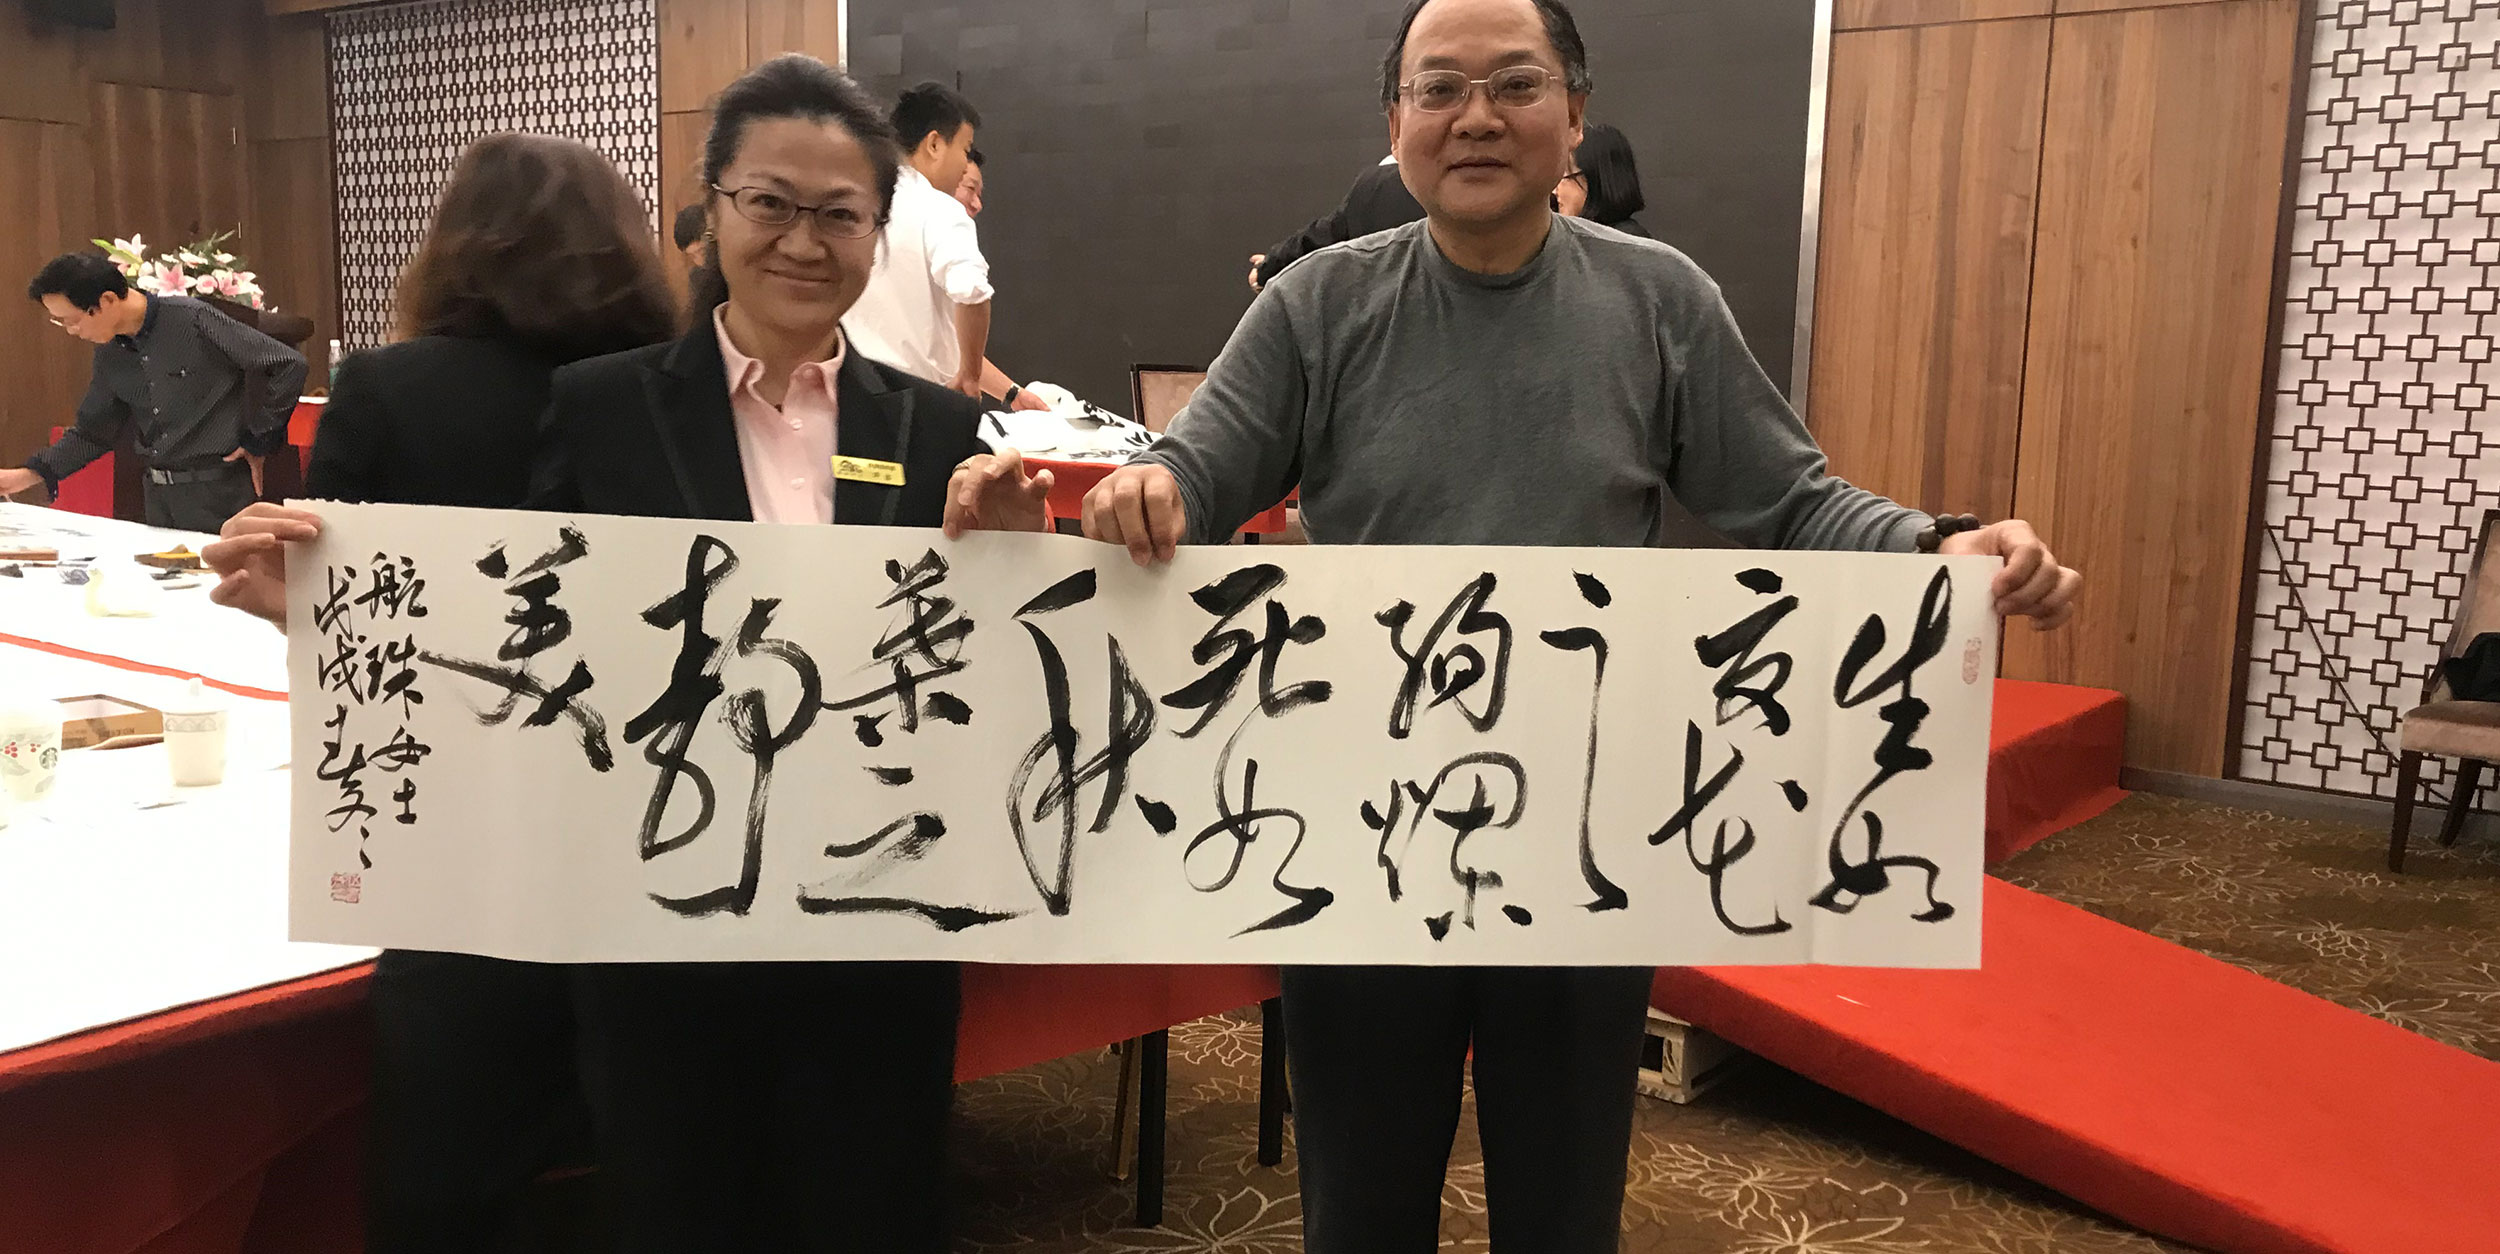 生如
夏花
之
绚爛
死如
秋
葉之
静
美
航珠女士
戊戌